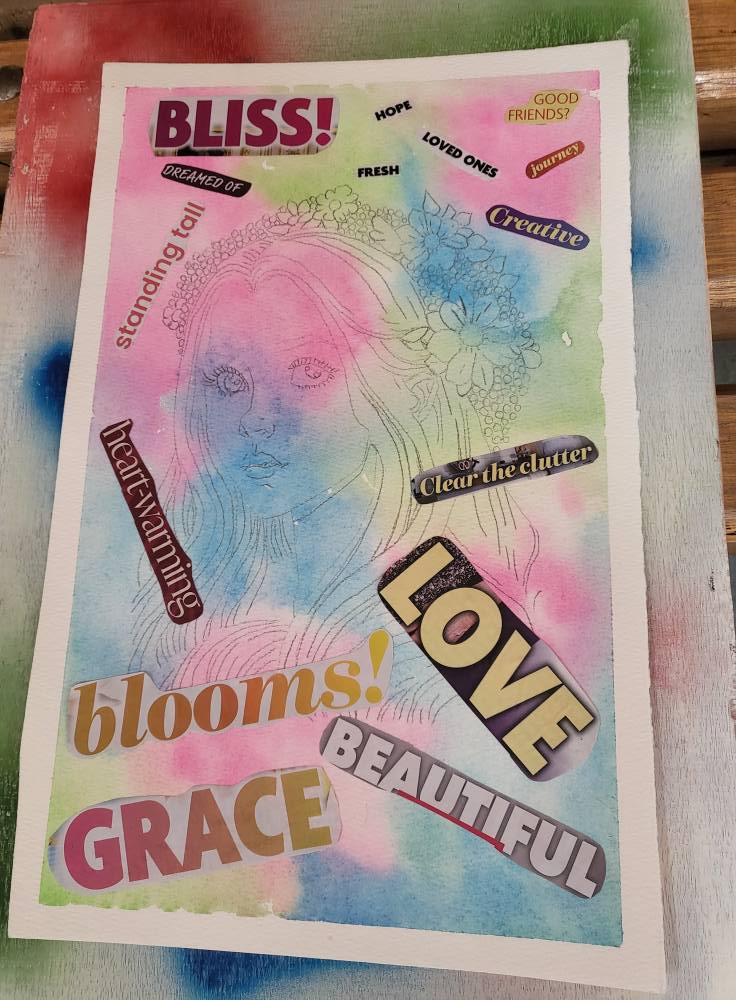 BLISS!
HOPE
GOOD
FRIENDS?
LOVED ONES
journey
DREAMED OF
FRESH
Creative
standing tall
heart-warming
Clear the clutter
LOVE
blooms!
BEAUTIFUL
GRACE